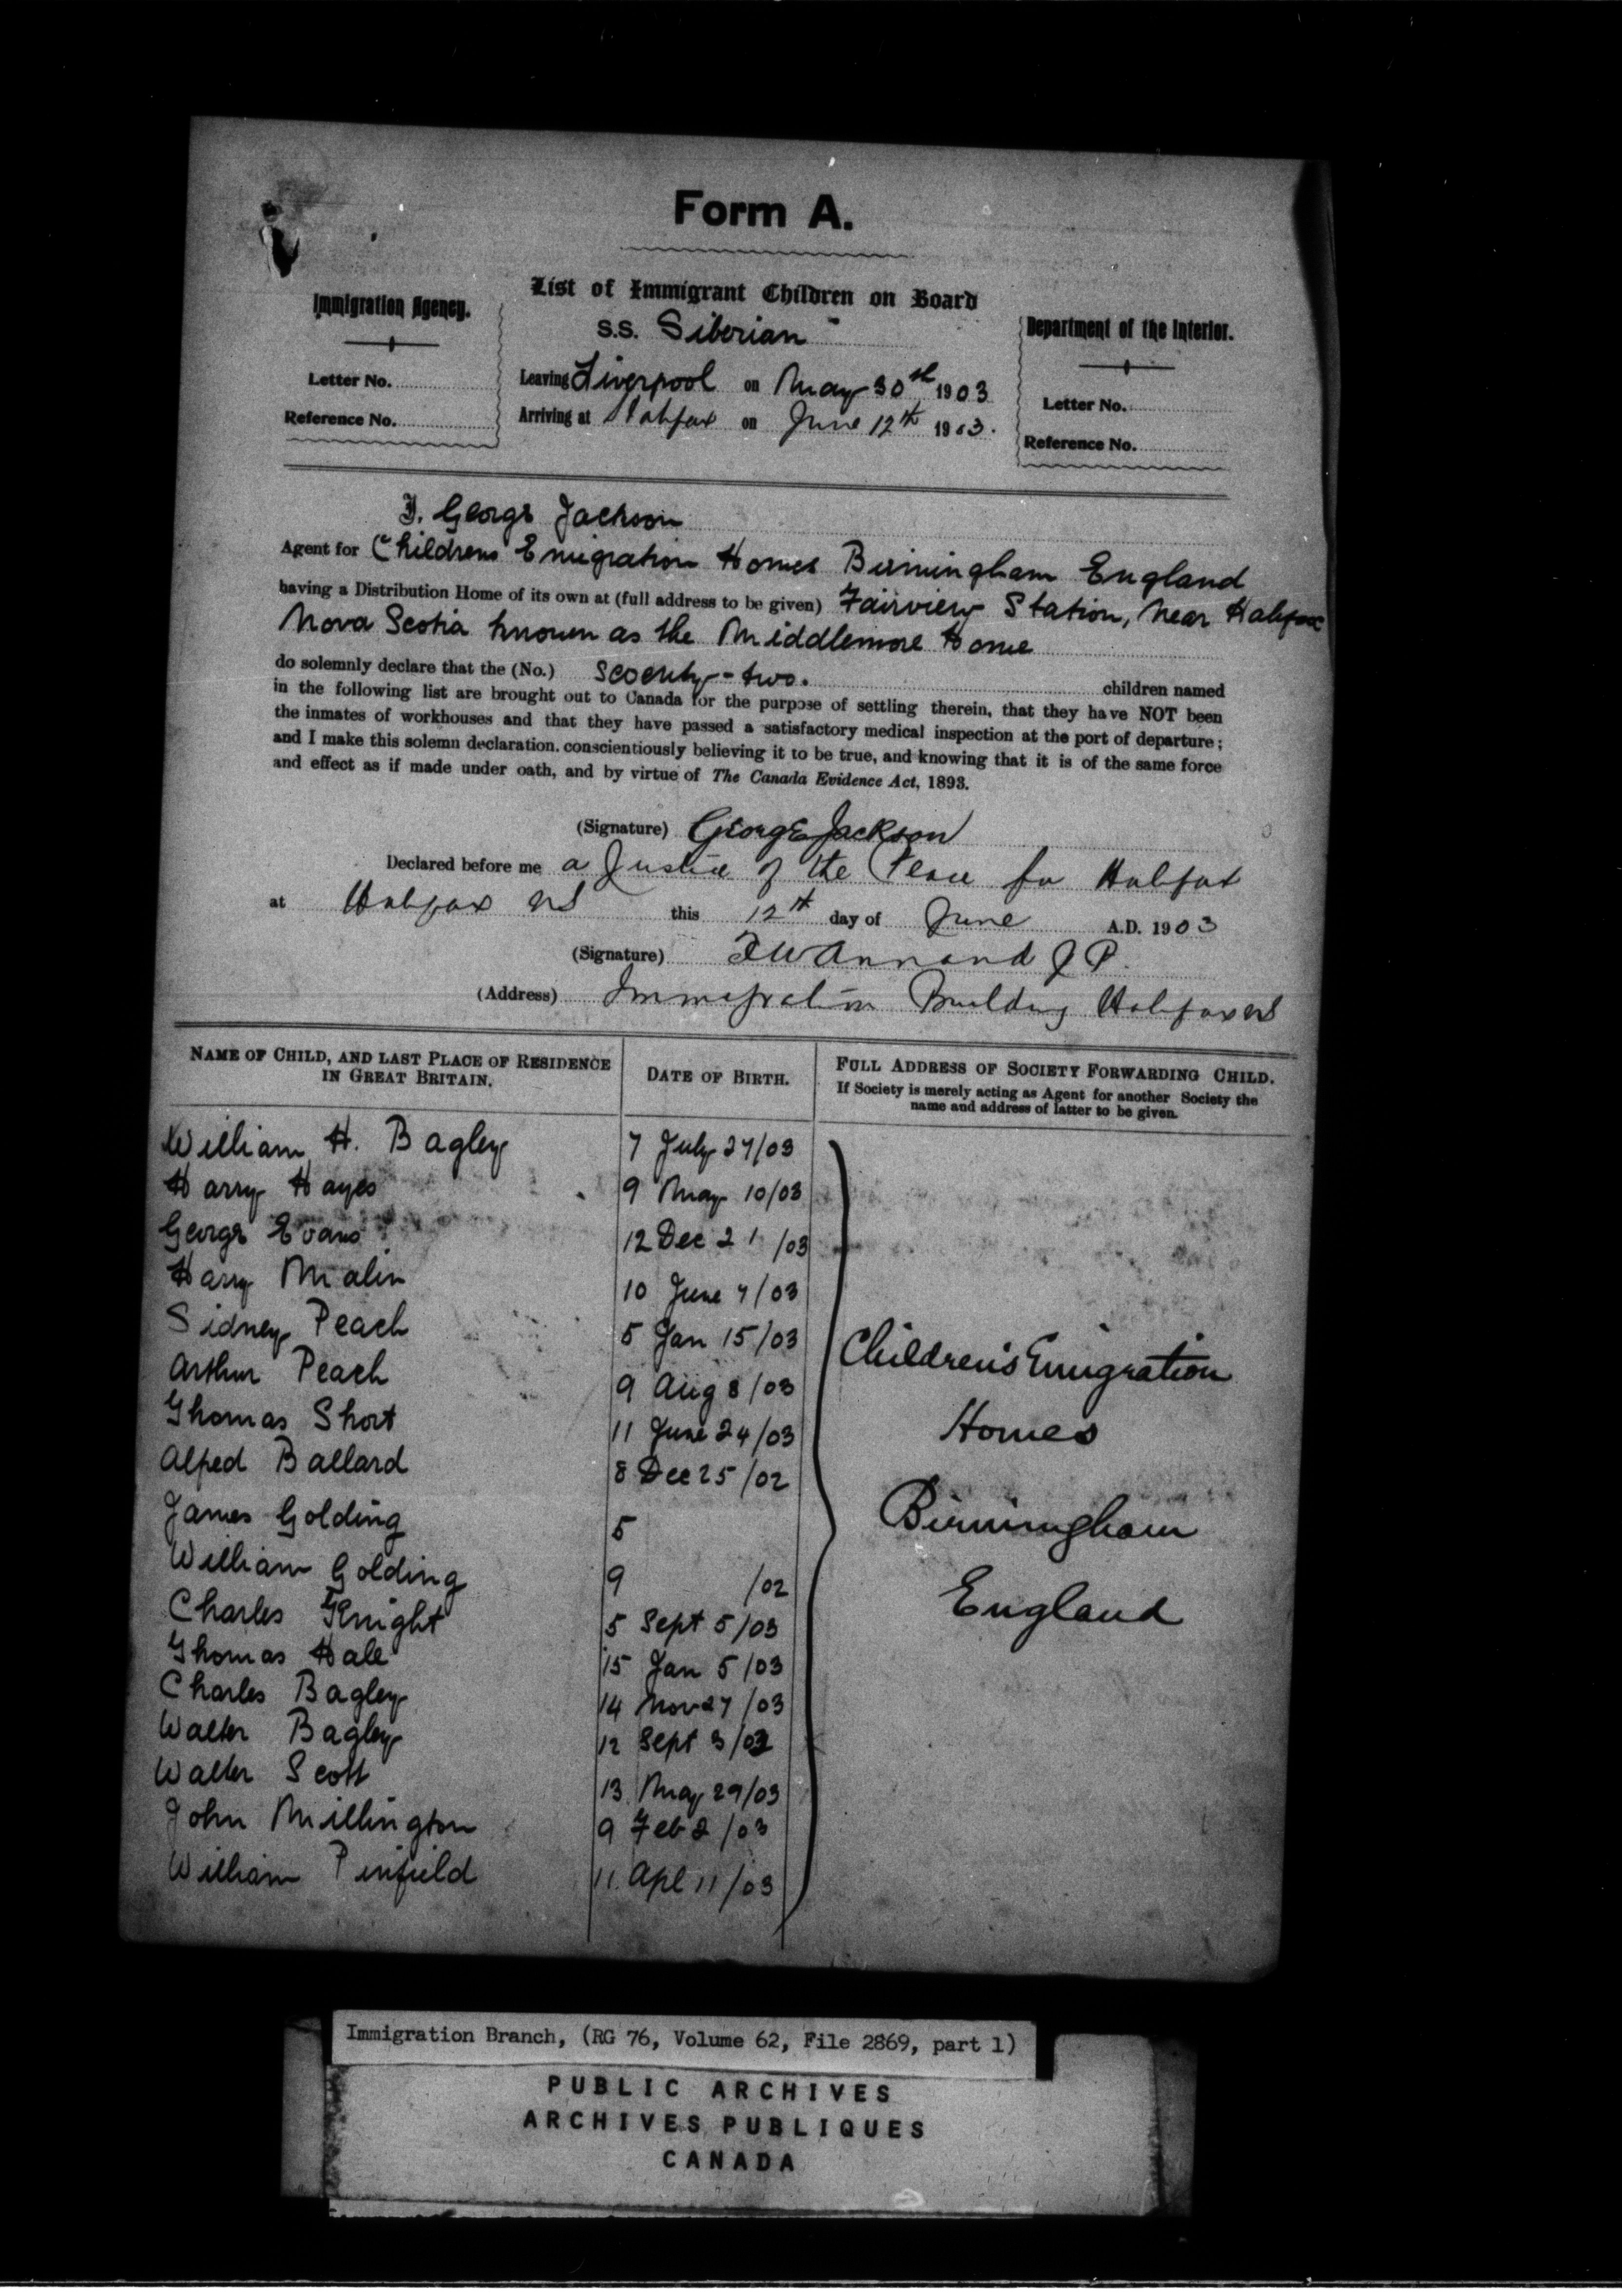 Form A.
List of Immigrant Children on Board
Immigration Agency.
S.S. Siberian
Department of the Interior.
Letter No.
Leaving Liverpool on May 30th 1903
Letter No.
Reference No.
Arriving at Halifax on June 12th 1903.
Reference No.
I. George Jackson
Agent for Childrens Emigration Homes Birmingham England
having a Distribution Home of its own at (full address to be given) Fairview Station, Near Halifax
Nova Scotia known as the Middlemore Home
do solemnly declare that the (No.) seventy-two. children named
in the following list are brought out to Canada for the purpose of settling therein, that they have NOT been
the inmates of workhouses and that they have passed a satisfactory medical inspection at the port of departure;
and I make this solemn declaration. conscientiously believing it to be true, and knowing that it is of the same force
and effect as if made under oath, and by virtue of The Canada Evidence Act, 1893.
(Signature) George Jackson
Declared before me a Justice of the Peace for Halifax
at Halifax NS this 12th day of June A.D. 1903
(Signature) FW Annand J P.
(Address) Immigration Building Halifax NS
NAME OF CHILD, AND LAST PLACE OF RESIDENCE
IN GREAT BRITAIN.
DATE OF BIRTH.
FULL ADDRESS OF SOCIETY FORWARDING CHILD.
If Society is merely acting as Agent for another Society the
name and address of latter to be given.
William H. Bagley 7 July 27/03
Harry Hayes 9 May 10/03
George Evans 12 Dec 21 /03
Harry Malin 10 June 7/03
Sidney Peach 5 Jan 15/03
Arthur Peach 9 Aug 8/03
Thomas Short 11 June 24/03
Alfred Ballard 8 Dec 25/02
James Golding 5
William Golding 9 /02
Charles Knight 5 Sept 5/03
Thomas Hale 15 Jan 5/03
Charles Bagley 14 Nov 27/03
Walter Bagley 12 Sept 3/02
Walter Scott 13 May 29/03
John Millington 9 Feb 2/03
William Pinfield 11. Apl 11/03
Children's Emigration
Homes
Birmingham
England
Immigration Branch, (RG 76, Volume 62, File 2869, part 1)
PUBLIC ARCHIVES
ARCHIVES PUBLIQUES
CANADA